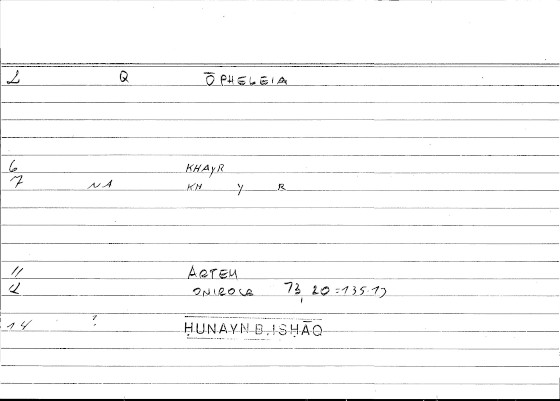 L Q ŌPHELEIA
6 KHAYR
7 NA KH Y R
11 ARTEM
L ONIROCR 73, 20 = 135.13
14 ? ḤUNAYN B. ISḤĀQ